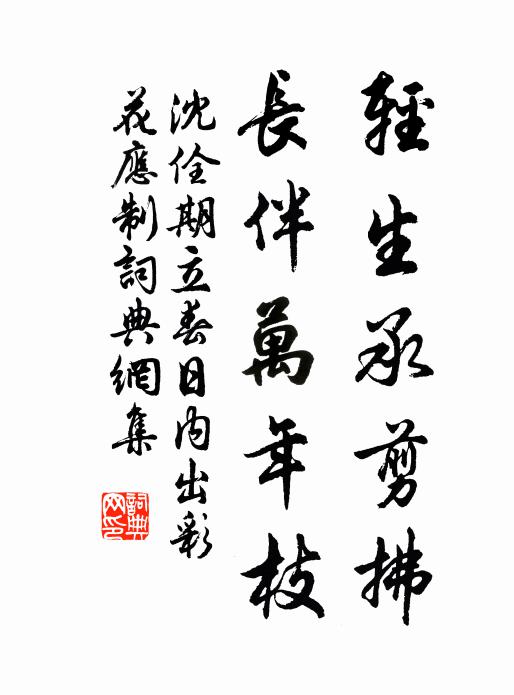 輕生承剪拂
長伴萬年枝
沈佺期立春日內出彩
花應制詞典網集
詞典網印